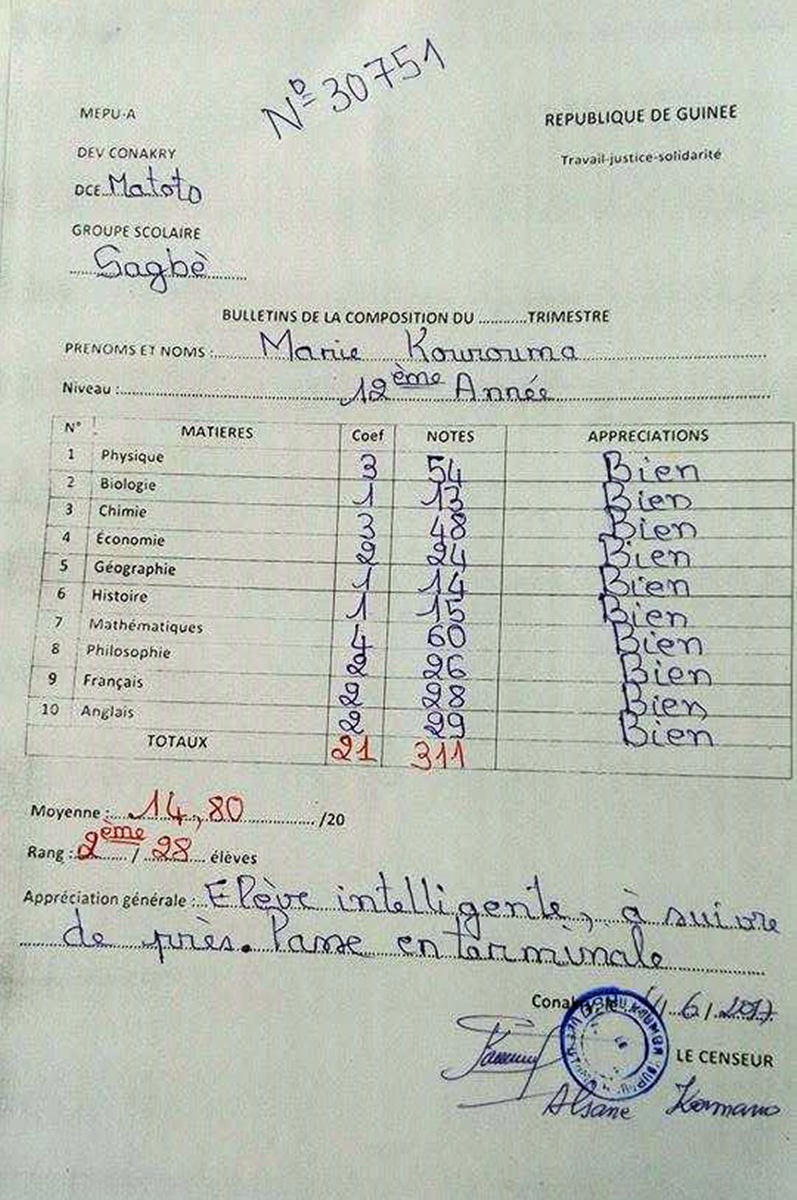 N° 30751
MEPU-A
REPUBLIQUE DE GUINEE
DEV CONAKRY
Travail-justice-solidarité
DCE Matoto
GROUPE SCOLAIRE
Sagbè
BULLETINS DE LA COMPOSITION DU ...........TRIMESTRE
PRENOMS ET NOMS : Marie Kourouma
Niveau : 12ème Année
N° MATIERES Coef NOTES APPRECIATIONS
1 Physique 3 54 Bien
2 Biologie 1 13 Bien
3 Chimie 3 48 Bien
4 Économie 2 24 Bien
5 Géographie 1 14 Bien
6 Histoire 1 15 Bien
7 Mathématiques 4 60 Bien
8 Philosophie 2 26 Bien
9 Français 2 28 Bien
10 Anglais 2 29 Bien
TOTAUX 21 311
Moyenne : 14,80 /20
Rang : 2ème / 28 élèves
Appréciation générale : Elève intelligente, à suivre
de près. Passe en terminale
6/2017
LE CENSEUR
Alsane Kermano